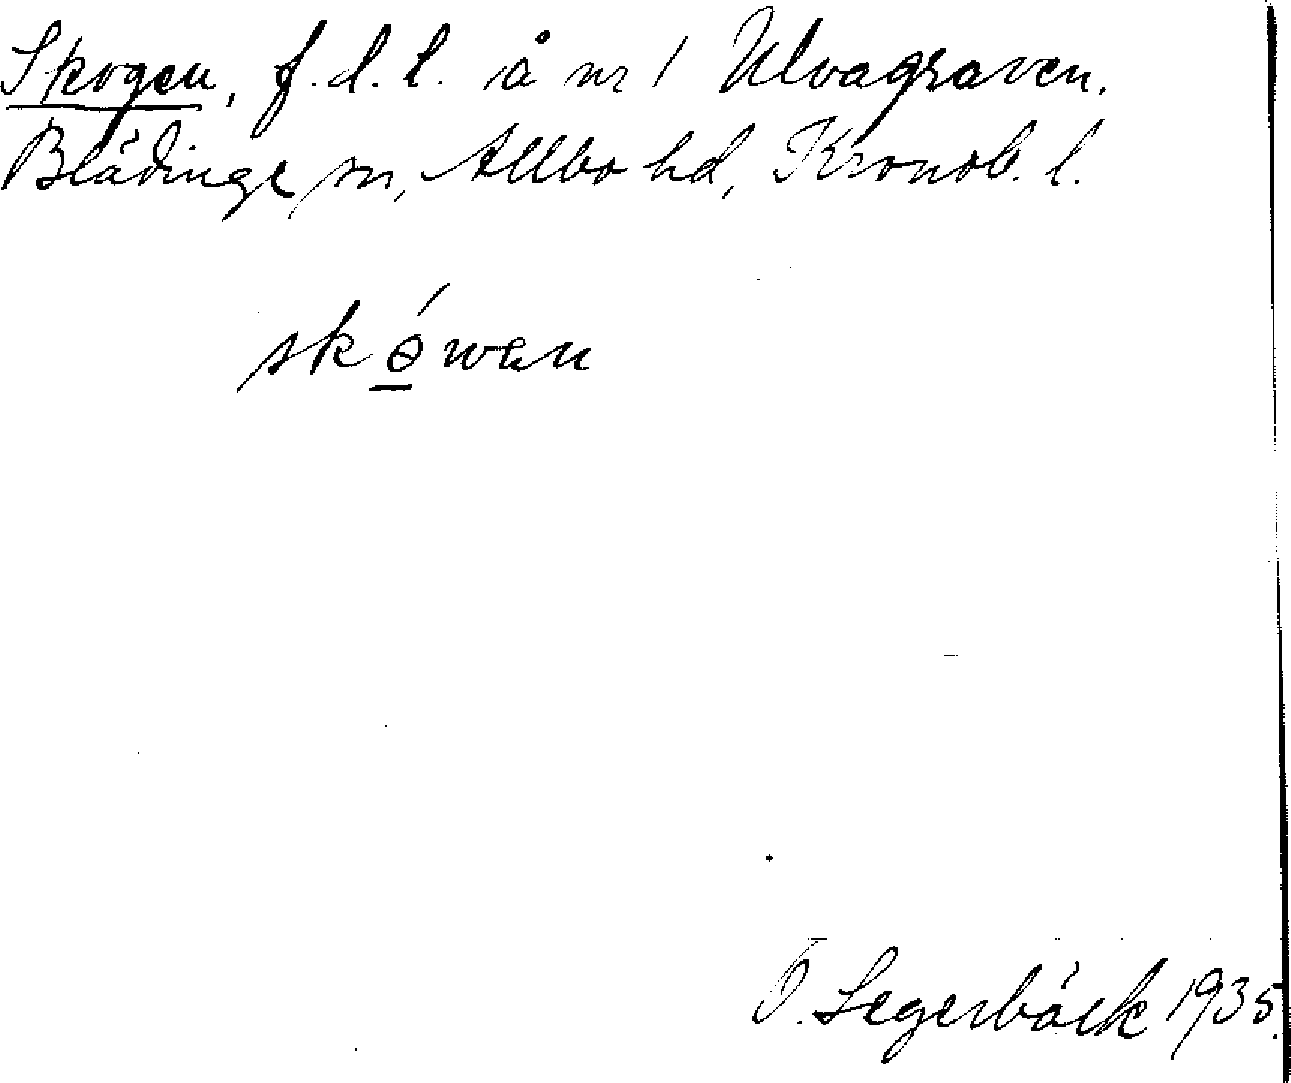 Skogen, f.d.l. å nr 1 Ulvagraven.
Blädinge sn, Allbo hd, Kronob. l.
skówen
J. Segerbäck 1935.